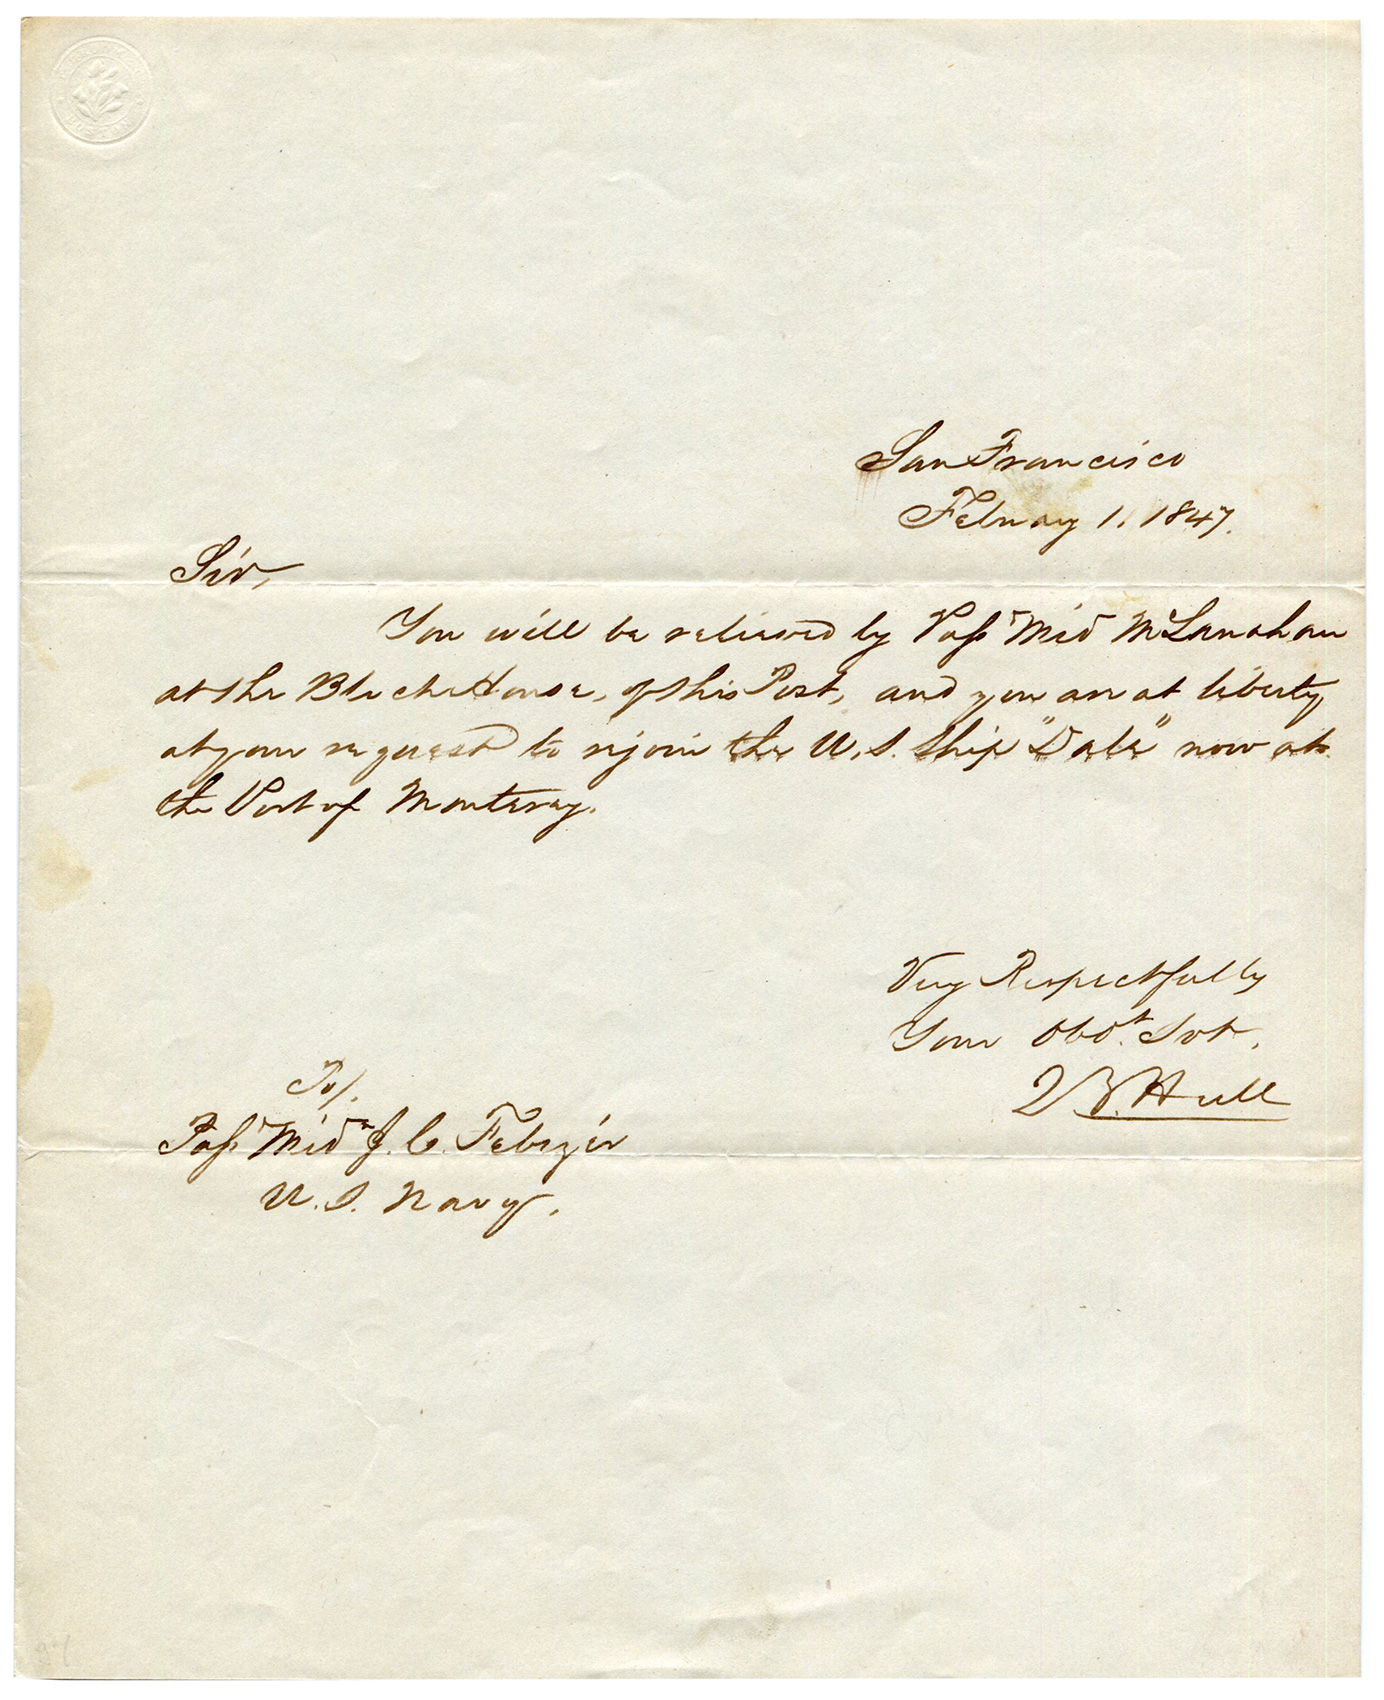 San Francisco
February 1, 1847.
Sir,
You will be relieved by Passd Mid McLanahan
at the Blocke House, of this Post, and you are at liberty
at your request to rejoin the U.S. Ship "Dale" now at
the Port of Monterey.
Very Respectfully
Your Obdt. Svt,
J B. Hull
To/.
Passd Midn J. C. Febiger
U.S. Navy.